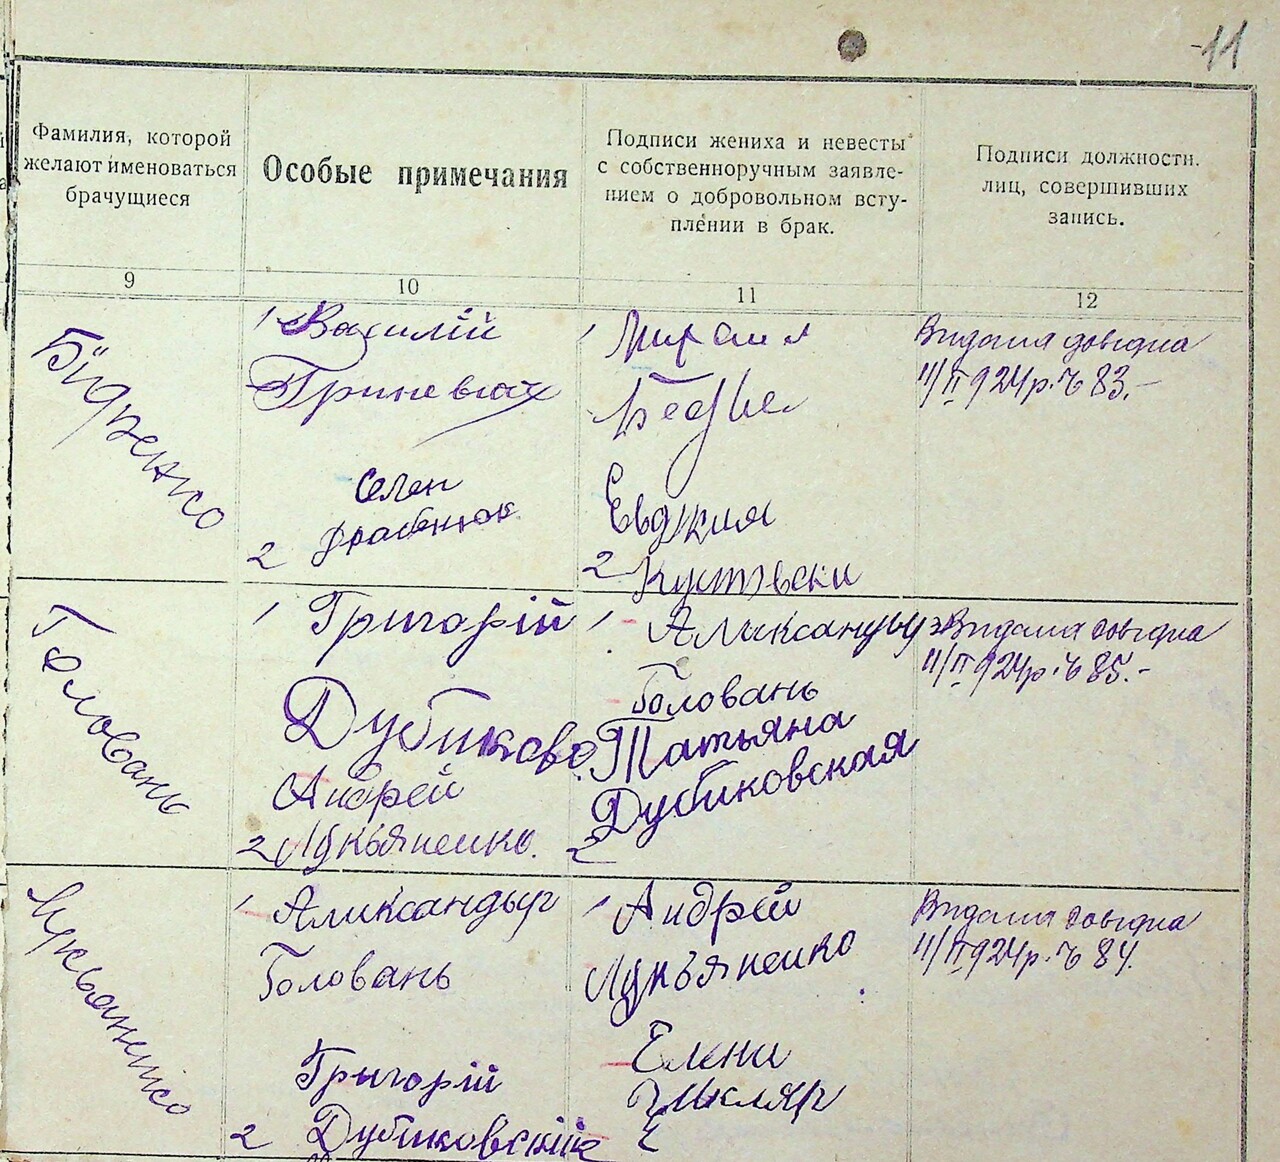 11
Фамилия, которой
желают именоваться
брачущиеся
Особые примечания
Подписи жениха и невесты
с собственноручным заявле-
нием о добровольном всту-
плении в брак.
Подписи должностн.
лиц, совершивших
запись.
9
10
11
12
Бідненко
1 Василій
2
1
Евдкия
2
Видана довідка
11/II 924 р. № 83.-
Головань
1 Григорій
Дубиковс
Андрей
2 Лукьяненко.
1 Аликсандыр
Головань
Татьяна
Дубиковская
2
Видана довідка
11/II 924 р. № 85.-
Лукьаненко
1 Аликсандыр
Головань
Григорій
2 Дубиковскій
1 Андрей
Лукьяненко
Елени
Шкляр
2
Видана довідка
11/II 924 р. № 84.